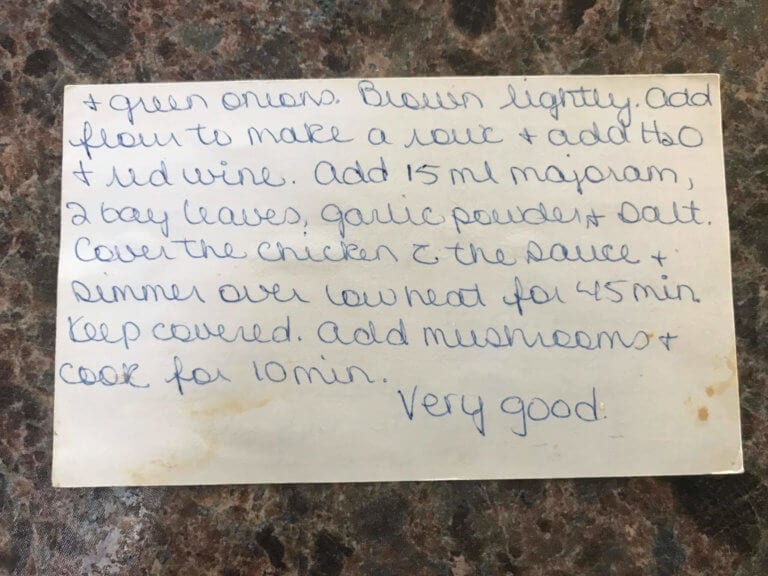 + green onions. Brown lightly. Add
flour to make a roux + add H2O
+ red wine. Add 15 ml majoram,
2 bay leaves, garlic powder + salt.
Cover the chicken c̄ the sauce +
simmer over low heat for 45 min.
Keep covered. Add mushrooms +
cook for 10 min.
Very good.